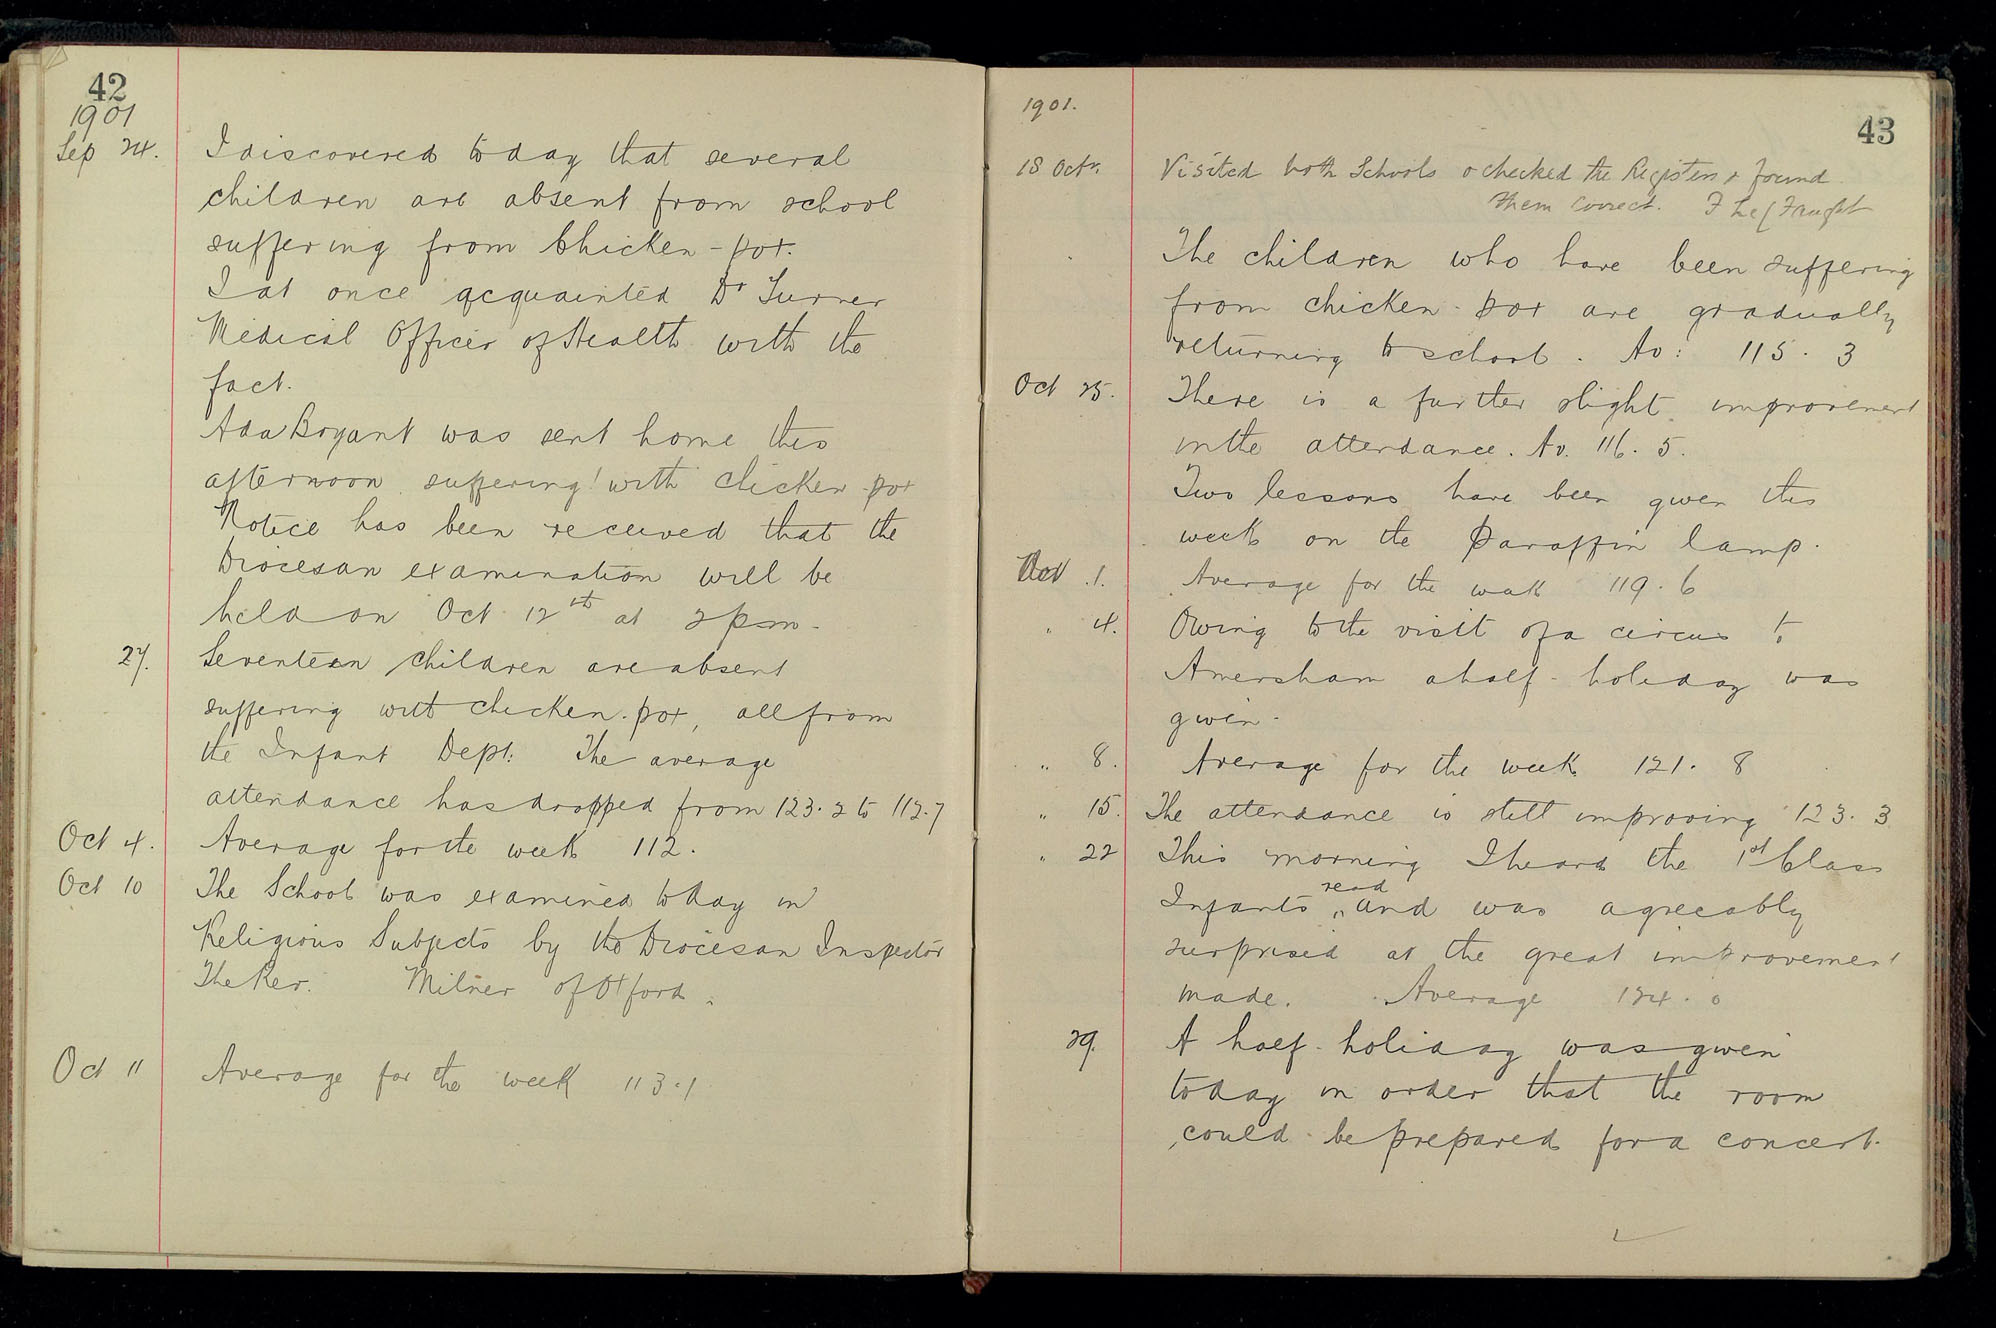 42
1901
Sep 24. I discovered today that several
children are absent from school
suffering from Chicken-pox.
I at once acquainted Dr Turner
Medical Officer of Health with the
fact.
Ada Bryant was sent home this
afternoon suffering with chicken-pox
Notice has been received that the
Diocesan examination will be
held on Oct 12th at 2 pm.
27. Seventeen children are absent
suffering with chicken-pox, all from
the Infant Dept. The average
attendance has dropped from 123.2 to 112.7
Oct 4. Average for the week 112.
Oct 10 The School was examined today in
Religious Subjects by the Diocesan Inspector
The Rev. Milner of Oxford.
Oct 11 Average for the week 113.1
1901.
43
18 Octr. Visited both Schools & checked the Registers & found
them correct.
The children who have been suffering
from chicken-pox are gradually
returning to school. Av: 115.3
Oct 25. There is a further slight improvement
in the attendance. Av. 116.5.
Two lessons have been given this
week on the Paraffin lamp.
Nov .1. Average for the week 119.6
" 4. Owing to the visit of a circus to
Amersham a half-holiday was
given.
" 8. Average for the week 121.8
" 15. The attendance is still improving 123.3
" 22 This morning I heard the 1st Class
read
Infants " and was agreeably
surprised at the great improvement
made. Average 124.0
29. A half-holiday was given
today in order that the room
could be prepared for a concert.